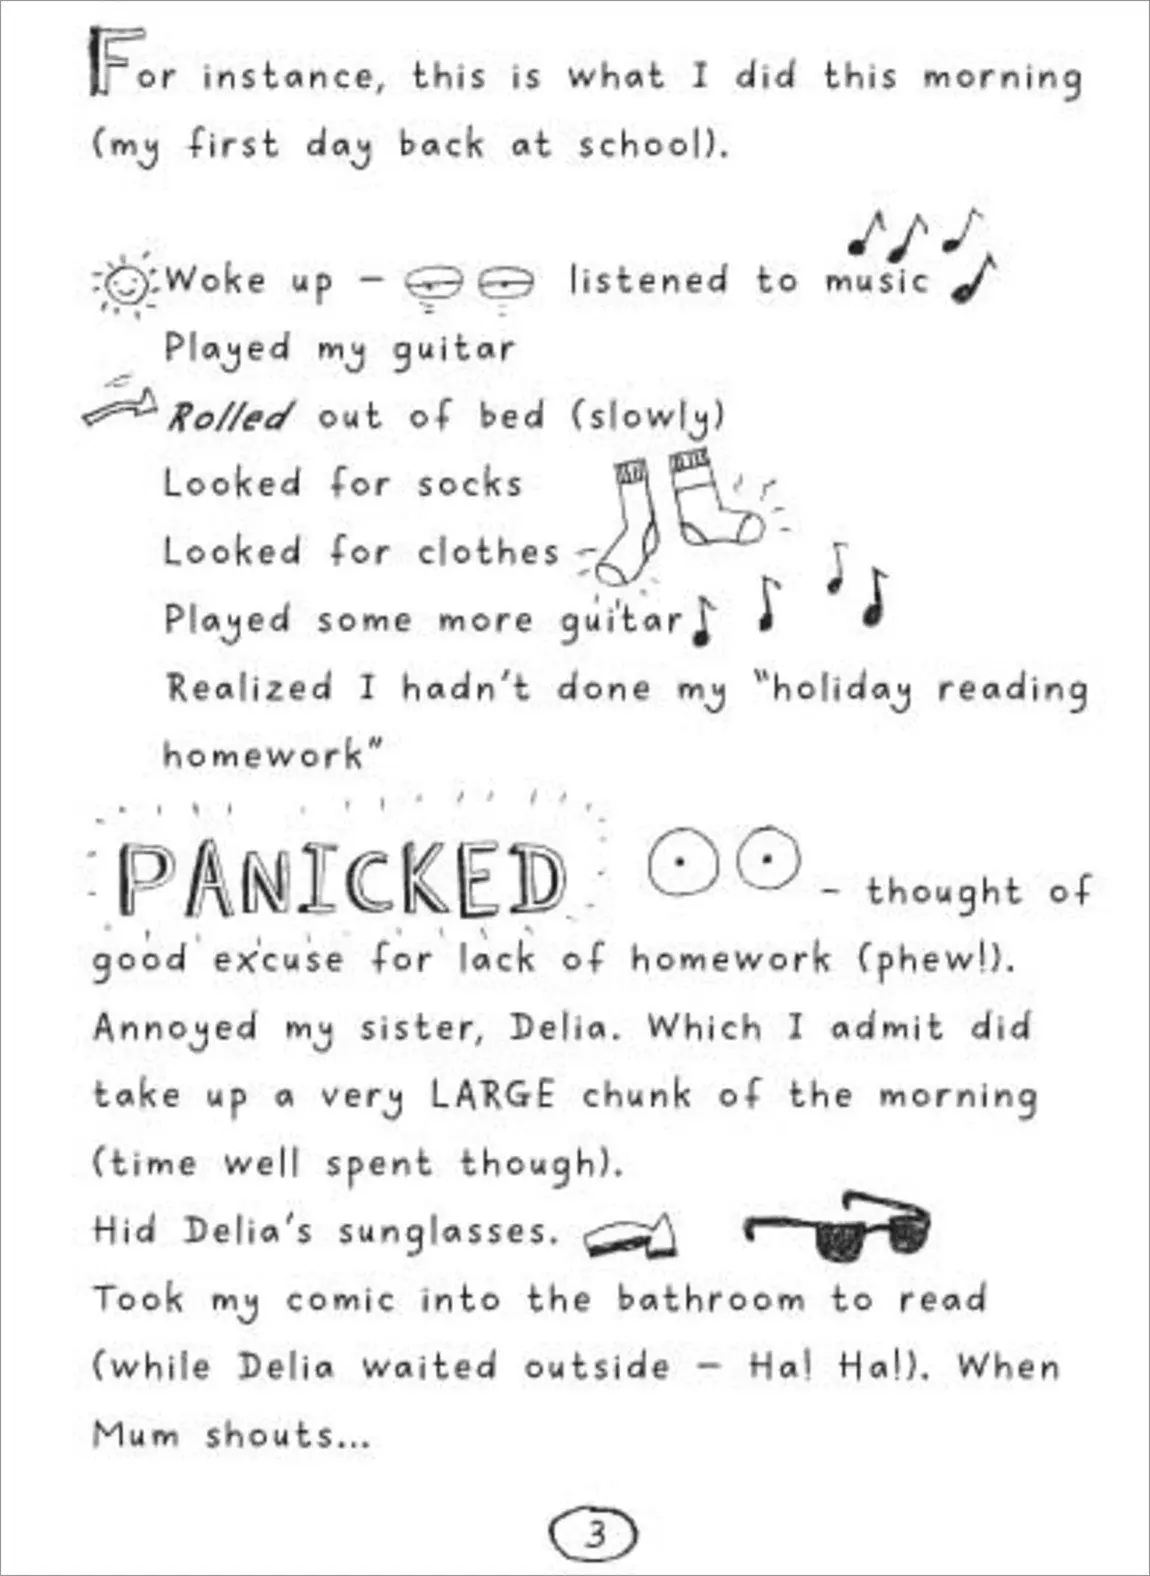 For instance, this is what I did this morning
(my first day back at school).
Woke up – listened to music
Played my guitar
Rolled out of bed (slowly)
Looked for socks
Looked for clothes
Played some more guitar
Realized I hadn't done my "holiday reading
homework"
PANICKED – thought of
good excuse for lack of homework (phew!).
Annoyed my sister, Delia. Which I admit did
take up a very LARGE chunk of the morning
(time well spent though).
Hid Delia's sunglasses.
Took my comic into the bathroom to read
(while Delia waited outside – Ha! Ha!). When
Mum shouts...
3